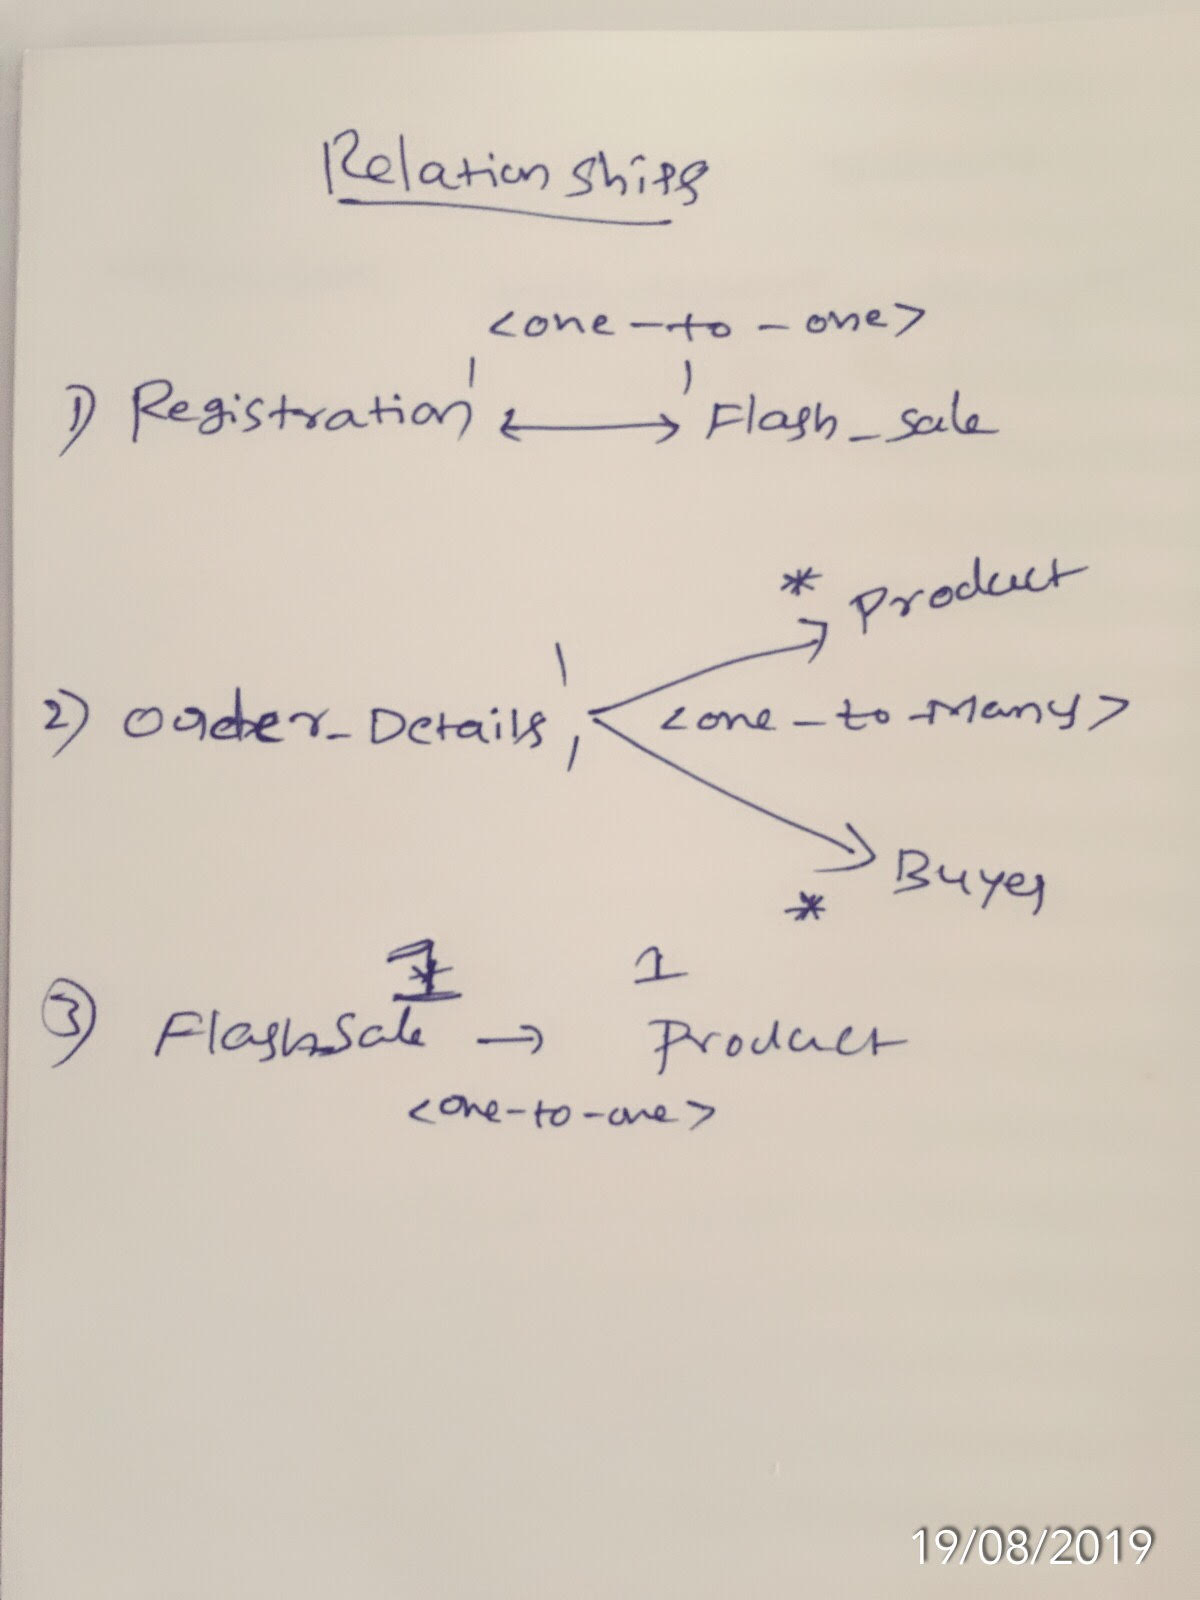 Relationships
<one-to-one>
1 1
1) Registration Flash_sale
* Product
1
2) Order_Details <one-to-Many>
1
Buyer
*
1 1
3) FlashSale → Product
<one-to-one>
19/08/2019